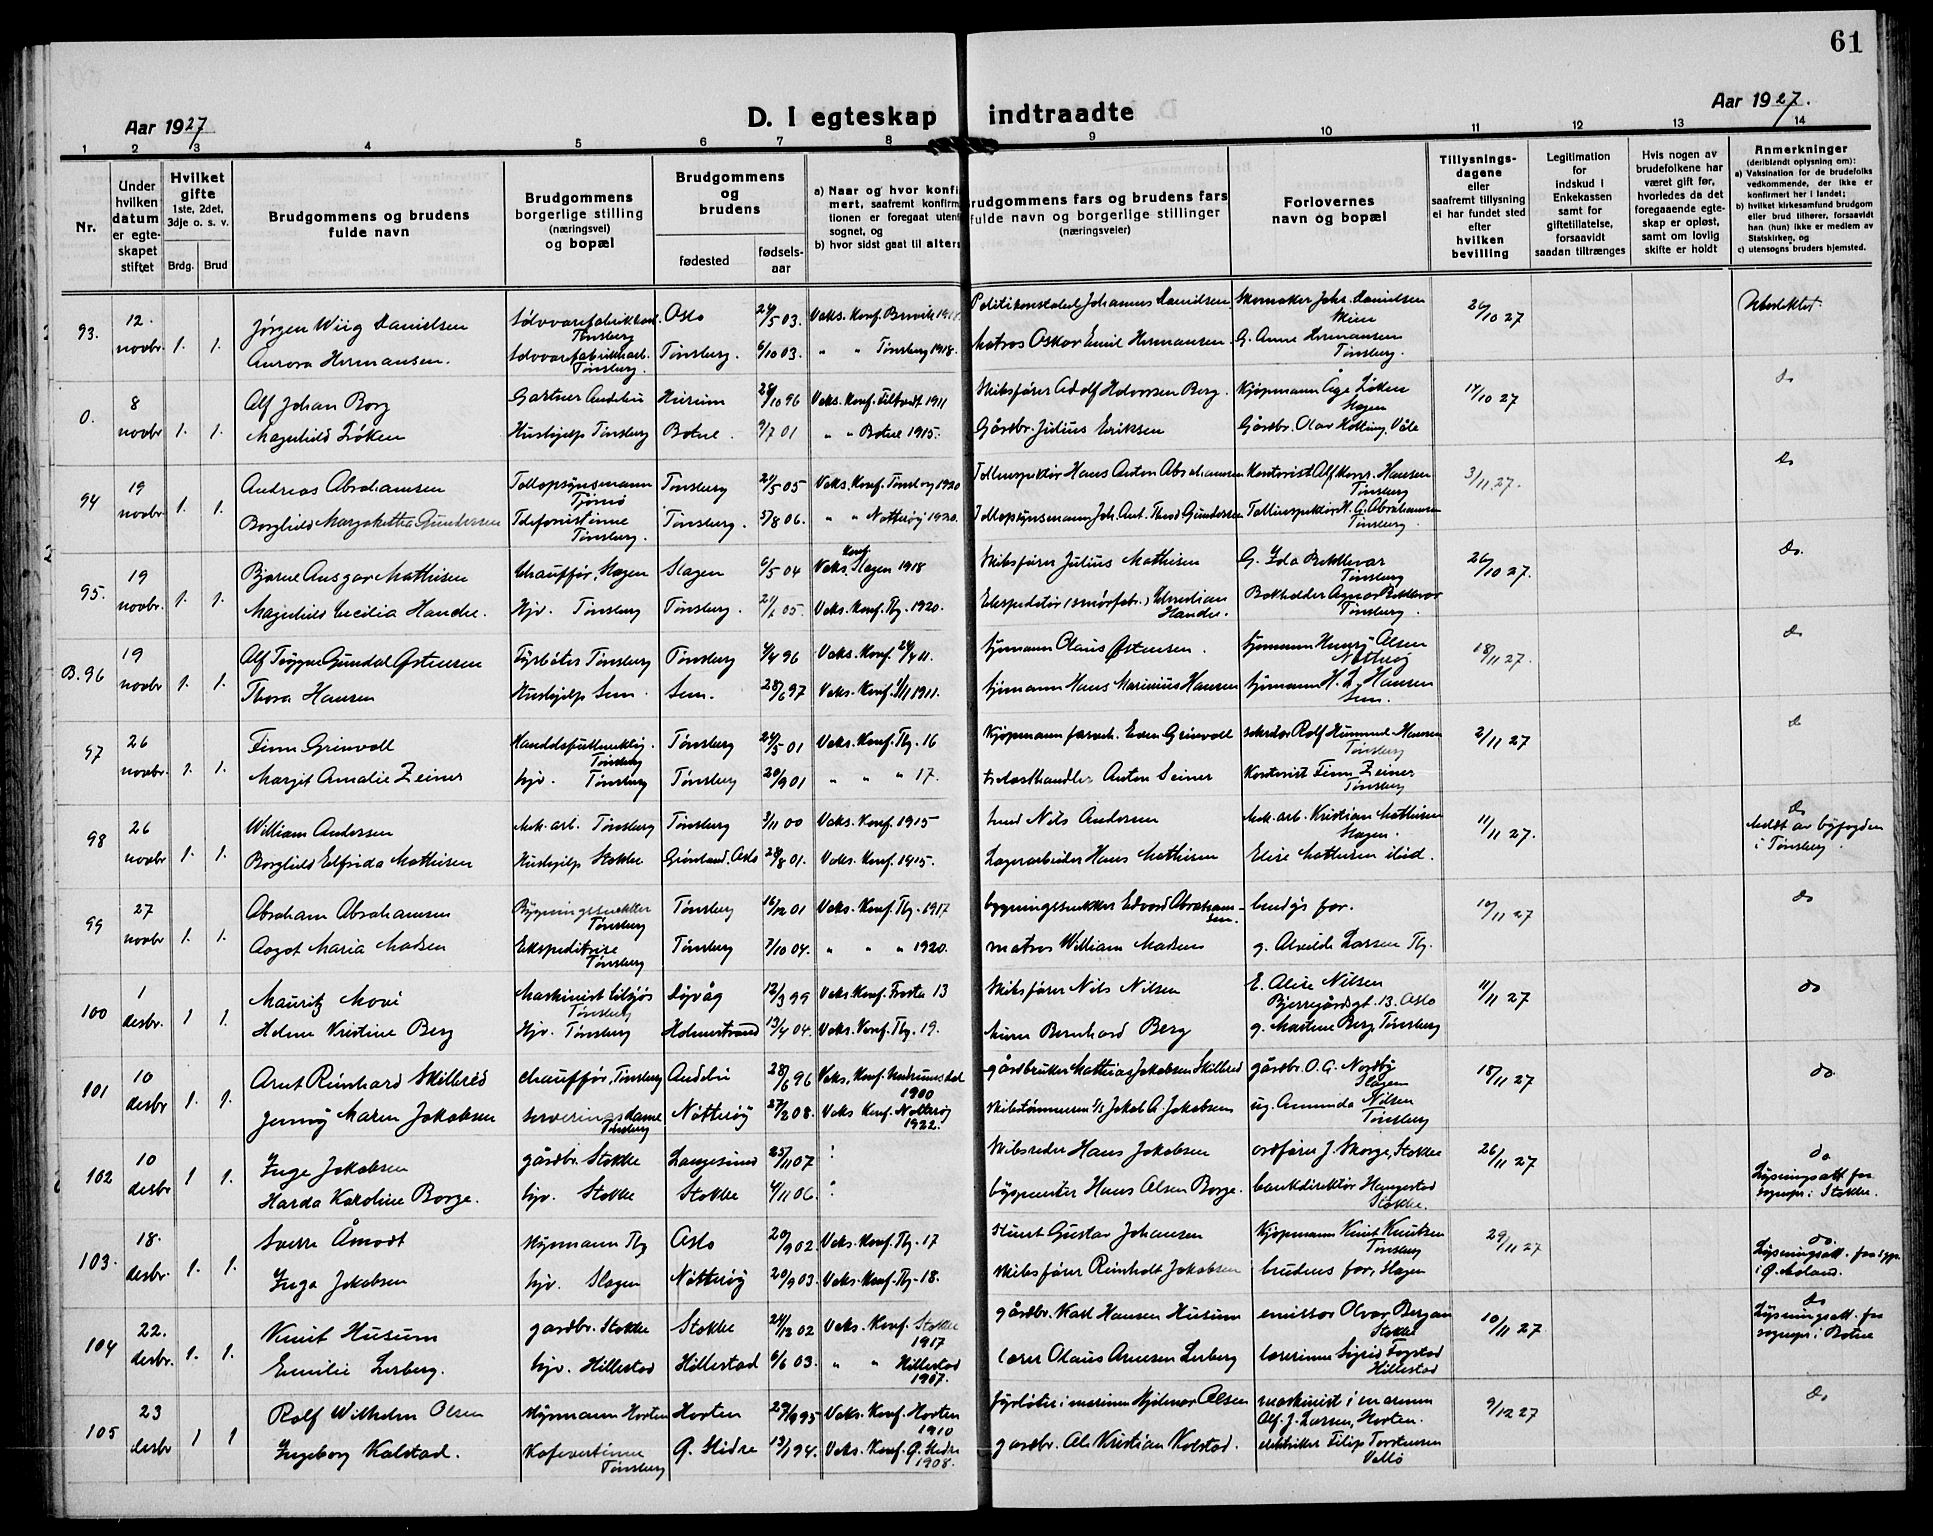 61
Aar 1927
D. I egteskap indtraadte
Aar 1927.
1 2 3 4 5 6 7 8 9 10 11 12 13 14
Nr.
Under hvilken datum er egteskapet stiftet
Hvilket gifte
1ste, 2det, 3dje o. s. v.
Brdg. Brud
Brudgommens og brudens fulde navn
Brudgommens borgerlige stilling
(næringsvei)
og bopæl
Brudgommens og brudens
fødested
fødsels-
aar
a) Naar og hvor konfi
mert, saafremt konfirm
tionen er foregaat utenf
sognet, og
b) hvor sidst gaat til alters
rudgommens fars og brudens fars
fulde navn og borgerlige stillinger
(næringsveier)
Forlovernes
navn og bopæl
Tillysnings-
dagene
eller
saafremt tillysning
ei har fundet sted
efter
hvilken
bevilling
Legitimation
for
indskud i
Enkekassen
samt for
giftetillatelse,
forsaavidt
saadan tiltrænges
Hvis nogen av
brudefolkene har
været gift før,
hvorledes da det
foregaaende egte-
skap er opløst,
samt om lovlig
skifte er holdt
Anmerkninger
(deriblandt oplysning om):
a) Vaksination for de brudefolks
vedkommende, der ikke er
konfirmert her i landet;
b) hvilket kirkesamfund brudgom
eller brud tilhører, forsaavidt
han (hun) ikke er medlem av
Statskirken, og
c) utensogns bruders hjemsted.
93. 12. novbr. 1. 1.
Jørgen Wiig Danielsen Tønsberg Oslo 03. Vaks. Konf. Brevik 1918. Politikonstabel Johannes Danielsen Skomaker Johs. Danielsen Skien 26/10 27
Aurora Hermansen. Sølvvarefabrikkarb. Tønsberg. Tønsberg. 6/10 03. " " Tønsberg 1918. Matros Oskar Emil Hermansen. G. Anne Hermansen Tønsberg.
0. 8 novbr 1. 1.
Alf Johan Borg Gartner Andebu Hurum 28/10 96 Vaks. Konf. 1911 Skibsfører Adolf Halvorsen Berg. Kjøpmann Åge Løken Slagen 14/10 27 do
Magnhild Løken Hushjelp Tønsberg Botne. 9/7 01 " " Botne 1915. Gårdbr. Julius Eriksen Gårdbr. Olav Våle
94 19 novbr. 1. 1.
Andreas Abrahamsen Tollopsynsmann Tjømø Tønsberg 21/5 05 Vaks. Konf. Tønsberg 1920 Tollinspektør Hans Anton Abrahamsen Kontorist Alf Konr. Hansen Tønsberg 3/11 27. do
Borghild Margrethe Gundersen Telefonistinne Tønsberg. Tønsberg. 5/8 06. " " Nøtterøy 1920. Tollopsynsmann Joh. Ant. Theod Gundersen Tollinspektør H. A. Abrahamsen Tønsberg.
95. 19 novbr. 1. 1.
Bjarne Ansgar Mathisen Chauffør, Slagen Slagen 6/5 04 Vaks. Konf. Slagen 1918 Skibsfører Julius Mathisen G. Ida Tønsberg 26/10 27. do.
Magnhild Cecilia Hande. Hjv. Tønsberg Tønsberg. 05. Vaks. Konf. Tbg. 1920. Ekspeditør (smørfabr.) Christian Hande. Bokholder Tønsberg.
B. 96 19 novbr 1. 1.
Alf Trygve Gundal Østensen Fyrbøter Tønsberg Tønsberg 96 Vaks. Konf. 11. Sjømann Claus Østensen. Sjømann Henry Olsen Nøtterøy 18/11 27. do
Thora Hansen Hushjelp Sem. Sem. 28/6 97 Vaks. Konf. 1911. Sjømann Hans Marinius Hansen Sjømann H. L. Hansen Sem.
97 26 novbr. 1. 1.
Finn Grinvoll Handelsfullmektig. Tønsberg Tønsberg 24/5 01 Vaks. Konf. Tbg. 16 Kjøpmann Grinvoll Rolf Hummel Hansen Tønsberg 2/11 27 do
Margit Amalie Zeiner hjv. Tønsberg Tønsberg 20/9 01 " " " 17. Anton Seiner Kontorist Finn Zeiner Tønsberg
98 26 novbr. 1. 1.
William Andersen Mek. arb. Tønsberg Tønsberg 3/11 00 Vaks. Konf. 1915 Smed Nils Andersen Mek. arb. Kristian Mathisen Slagen. 11/11 27. do
Meldt av byfogden i Tønsberg.
Borghild Elfrida Mathisen Hushjelp Stokke Grønland, Oslo 28/8 01. Vaks. Konf. 1915. Lagerarbeider Hans Mathisen Elise Mathisen ibid.
99 27 novbr 1. 1.
Abraham Abrahamsen Bygningssnekker Tønsberg Tønsberg 16/12 01 Vaks. Konf. Tbg. 1917 bygningssnekker Edvard Abrahamsen. brudgs far. 10/11 27 do
Aagot Maria Madsen Ekspeditrise Tønsberg Tønsberg 7/10 04. " " " 1920. matros William Madsen g. Alvilde Larsen Tbg.
100 1 desbr. 1 1.
Mauritz Moxi Maskinist tilsjøs Tønsberg 12/3 99 Vaks. Konf. Frosta 13 Skibsfører Nils Nilsen E. Alise Nilsen Bjerregårdsgt. 13. Oslo 11/11 27 do
Helene Kristine Berg Hjv. Tønsberg Holmestrand 19/4 04. Vaks. Konf. Tbg. 19. Bernhard Berg g. Martine Berg Tønsberg
101 10 desbr 1. 1.
Arnt Reinhard Skillesø chauffør, Tønsberg Andebu 28/6 96 Vaks. Konf. 1900 gårdbruker Mathias Jakobsen gårdbr. O. G. Nordby Slagen 18/11 27 do
Jenny Maren Jakobsen serveringsdame Tønsberg Nøtterøy 27/2 08. Vaks Konf. Nøtterøy 1922. Jakob A. Jakobsen ug. Amunda Nilsen Tønsberg
102 10 desbr 1 1.
Inge Jakobsen gårdbr. Stokke Langesund 25/11 07 : Skibsreder Hans Jakobsen ordfører J. Skorge, Stokke 26/11 27 do
Lysningsatt. fra sognepr. i Stokke.
Harda Karoline Borge. hjv. Stokke Stokke 4/11 06. : byggmester Hans Olsen Borge. bankdirektør Haugestad Stokke.
103. 18. desbr. 1. 1.
Sverre Åmodt Styrmann Tbg Oslo 20/9 02 Vaks. Konf. Tbg. 17 Gustav Johansen Kjøpmann Knut Knutsen Tønsberg 29/11 27 do.
Lysningsatt. fra sgpr. i Ø. Moland.
Inga Jakobsen hjv. Slagen Nøtterøy 20/9 03. Vaks. Konf. Tbg. 18. Skibsfører Reinholdt Jakobsen brudens far, Slagen
104 22. desbr. 1. 1.
Knut Husum gardbr. Stokke Stokke 24/12 02 Vaks. Konf. Stokke 1917 gårdbr. Karl Hansen Husum emissær Olvar Bergan Stokke 10/11 27 do
Lysningsatt. fra sognepr. i Botne
Emilie Lerberg. hjv. Hillestad Hillestad 6/6 03. " " Hillestad 1917. lærer Olaus Arnesen Lerberg lærerinne Sigrid Fogstad Hillestad
105 23 desbr 1 1
Rolf Wilhelm Olsen Styrmann Horten Horten 29/9 95 Vaks. Konf. Horten 1910 fyrbøter i marinen Hjalmar Olsen maskinist i marinen Alf. J. Larsen, Horten. 9/12 27 do
Ingeborg Kolstad. Kafevertinne Tønsberg Ø. Slidre 19/1 94. Vaks. Konf. Ø. Slidre 1908. gardbr. Ole Kristian Kolstad. elektriker Filip Torstensen Vallø